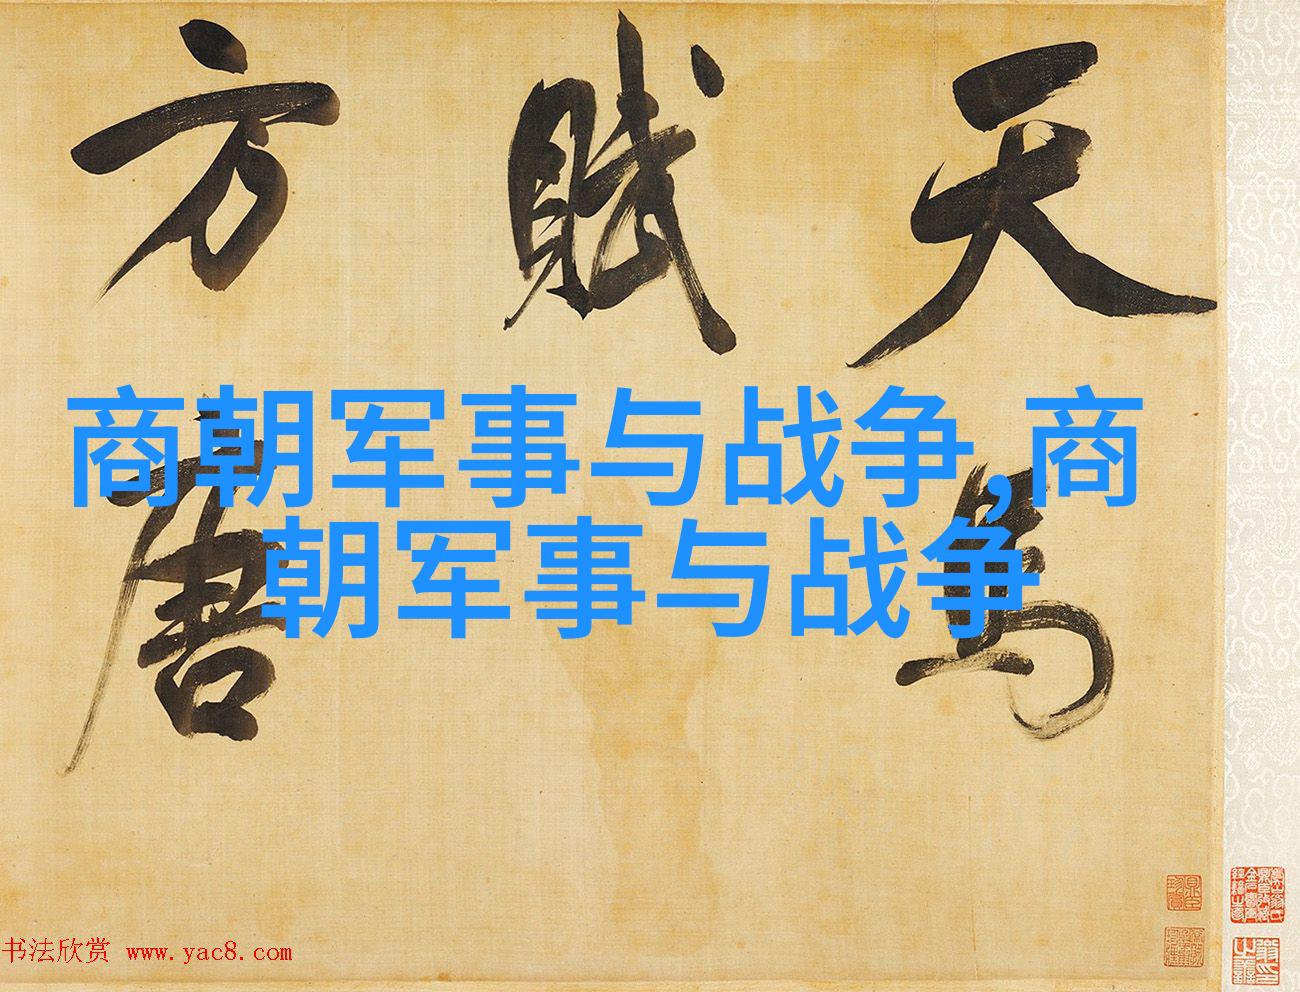 天马
赋
方唐
商朝军事与战争,商
朝军事与战争
书法欣赏 www.yac8.com